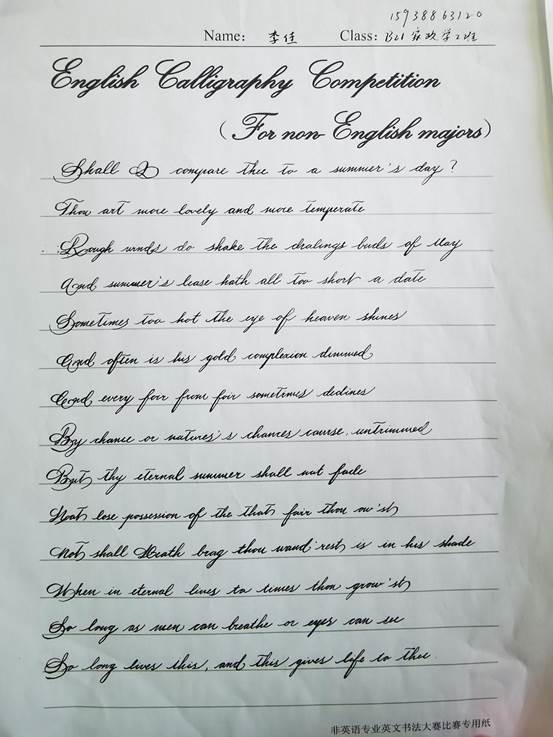 15938863120
Name: 李佳 Class: B21 麻醉学2班
English Calligraphy Competition
(For non-English majors)
Shall I compare thee to a summer's day?
Thou art more lovely and more temperate
Rough winds do shake the dralings buds of May
And summer's lease hath all too short a date
Sometimes too hot the eye of heaven shines
And often is his gold complexion dimmed
And every fair from fair sometimes declines
By chance or natures's chances course, untrimmed
But thy eternal summer shall not fade
Noat lose possession of the that fair thou ow'st
Not shall Death brag thou wand'rest is in his shade
When in eternal lines to times thou grow'st
So long as men can breathe or eyes can see
So long lives this, and this gives life to thee.
非英语专业英文书法大赛比赛专用纸